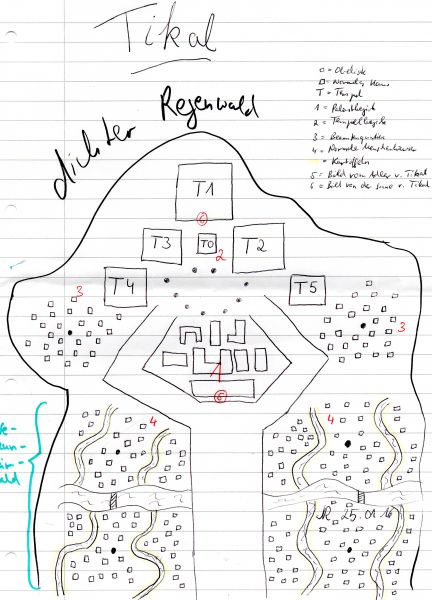 Tikal
dichter Regenwald
o = Obelisk
□ = Normales Haus
T = Tempel
1 = Palastbezirk
2 = Tempelbezirk
3 = Beamtenquartier
4 = Normale Menschenhäuser
= Kartoffeln
5 = Bild vom Adler v. Tikal
6 = Bild von der Sonne v. Tikal
T1
6
T3
T0
T2
2
T4
T5
3
3
1
5
4
4
25.01.16